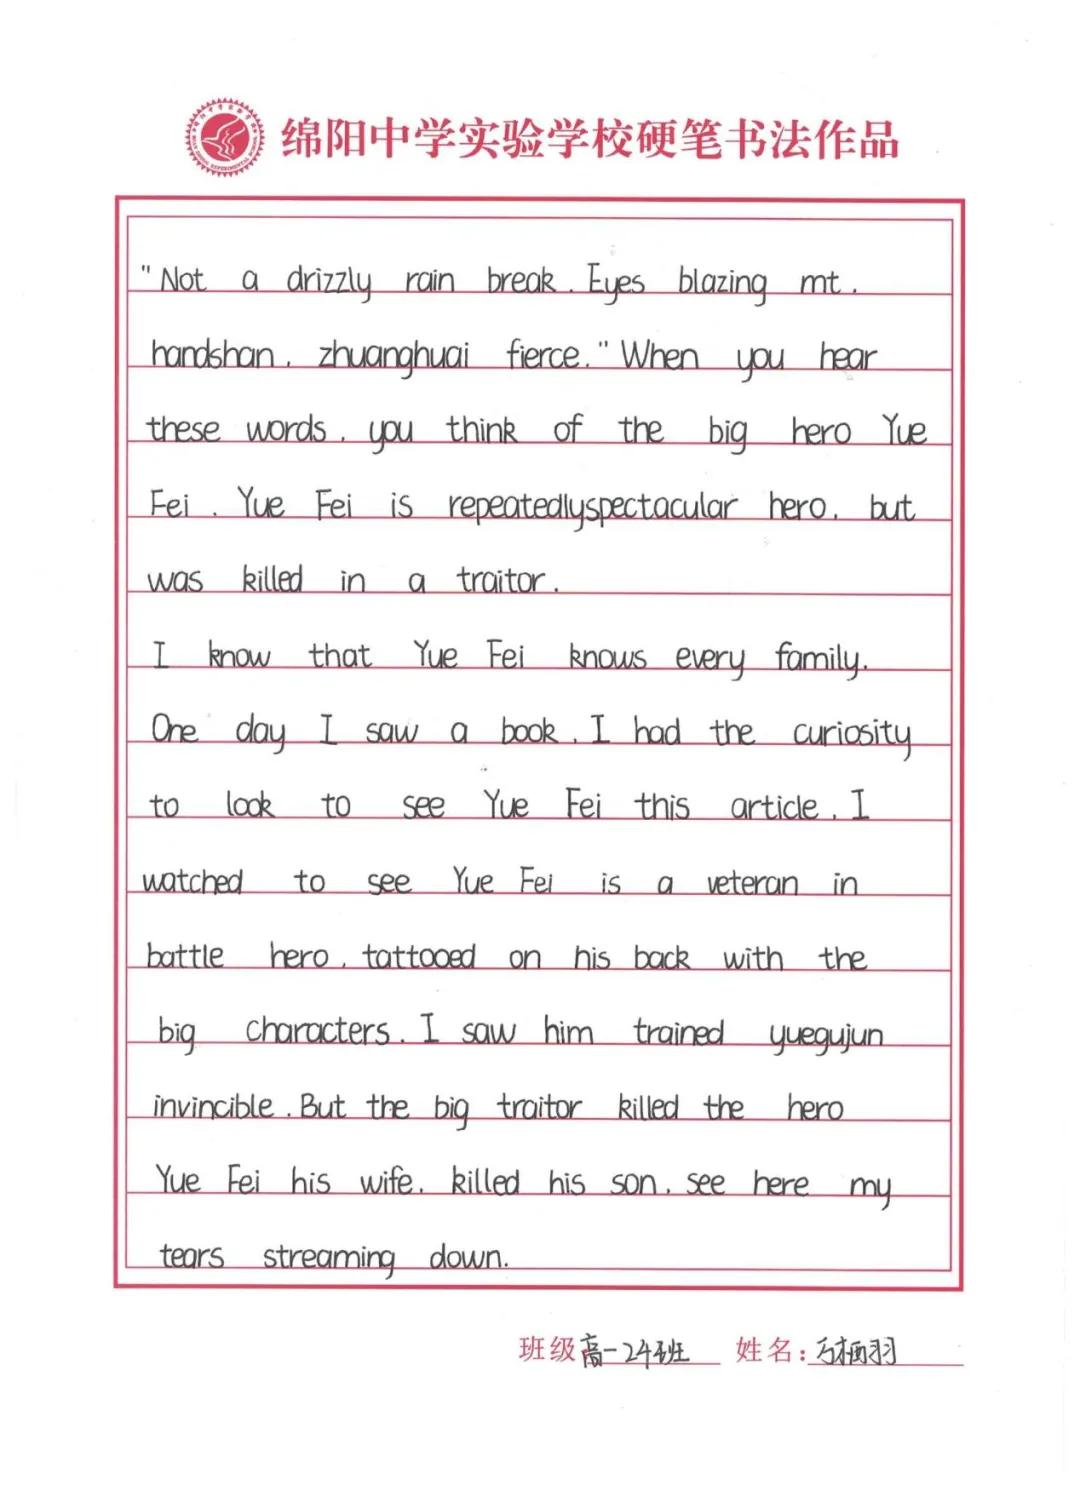 绵阳中学实验学校硬笔书法作品
"Not a drizzly rain break. Eyes blazing mt.
handshan, zhuanghuai fierce." When you hear
these words, you think of the big hero Yue
Fei. Yue Fei is repeatedlyspectacular hero, but
was killed in a traitor.
I know that Yue Fei knows every family.
One day I saw a book, I had the curiosity
to look to see Yue Fei this article, I
watched to see Yue Fei is a veteran in
battle hero, tattooed on his back with the
big characters. I saw him trained yuegujun
invincible. But the big traitor killed the hero
Yue Fei his wife, killed his son, see here my
tears streaming down.
班级 高一24班 姓名: 万栖羽